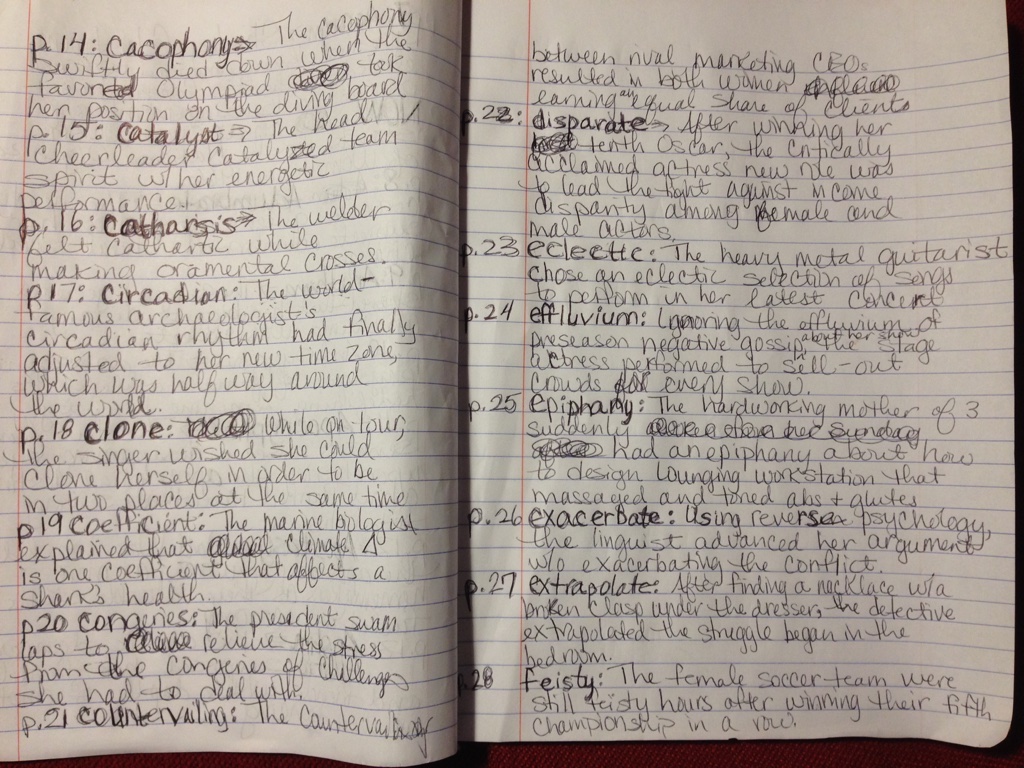 p.14: Cacophony⇒ The cacophony
swiftly died down when the
favored Olympiad took
her position on the diving board
p.15: Catalyst ⇒ The head
cheerleader catalyzed team
spirit w/her energetic
performance.
p.16: Catharsis⇒ The welder
felt cathartic while
making oramental crosses.
p17: Circadian: The world-
famous archaeologist's
circadian rhythm had finally
adjusted to her new time zone,
which was half way around
the world.
p.18 clone: While on tour,
the singer wished she could
clone herself in order to be
in two places at the same time
p19 coefficient: The marine biologist
explained that climate Δ
is one coefficient that affects a
shark's health.
p20 congeries: The president swam
laps to relieve the stress
from the congeries of challenges
she had to deal with.
p.21 countervailing: The countervailing
between rival marketing CEOs
resulted in both women
earning an equal share of clients
p.22: disparate⇒ After winning her
tenth Oscar, the critically
acclaimed actress new role was
to lead the fight against income
disparity among female and
male actors.
p.23 eclectic: The heavy metal guitarist
chose an eclectic selection of songs
to perform in her latest concert
p.24 effluvium: Ignoring the effluvium of
preseason negative gossip about her show, the stage
actress performed to sell-out
crowds for every show.
p.25 epiphany: The hardworking mother of 3
suddenly
had an epiphany about how
to design lounging workstation that
massaged and toned abs + glutes
p.26 exacerbate: Using reverse psychology,
the linguist advanced her argument
w/o exacerbating the conflict.
p.27 extrapolate: After finding a necklace w/a
broken clasp under the dresser, the defective
extrapolated the struggle began in the
bedroom.
p.28 feisty: The female soccer team were
still feisty hours after winning their fifth
championship in a row.